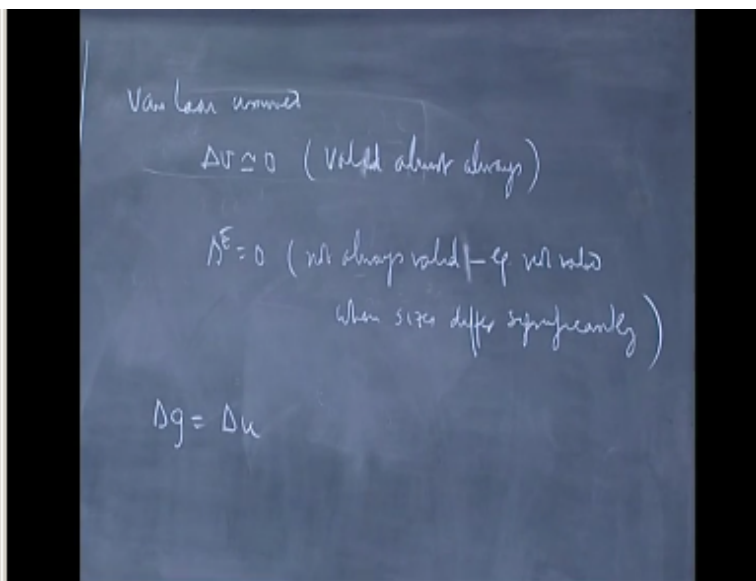 Van Laar assumed
Δv ≃ 0 (valid almost always)
s^E = 0 (not always valid – eg. not valid
when sizes differ significantly)
Δg = Δu